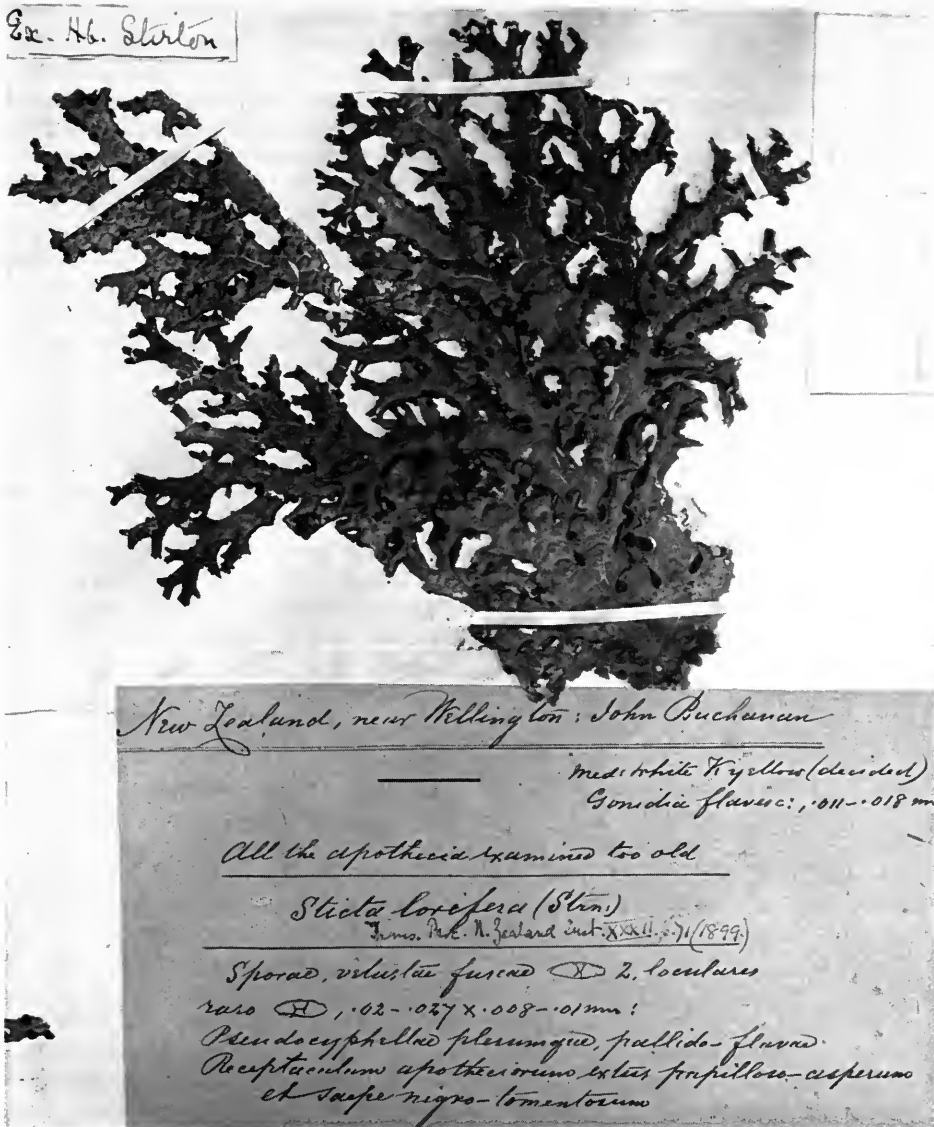 Ex. Hb. Stirton
New Zealand, near Wellington: John Buchanan
Med: white K yellow (decided)
Gonidia flavesc:, .011-.018 mm
All the apothecia examined too old
Sticta lorifera (Strn:)
Trans. Proc. N. Zealand Inst. XXXII, 71 (1899)
Sporae, vetustae fuscae 2, loculares
raro , .02-.027 x .008-.01 mm:
Pseudocyphellae plerumque, pallido-flavae.
Receptaculum apotheciorum extus papilloso-asperum
et saepe nigro-tomentosum